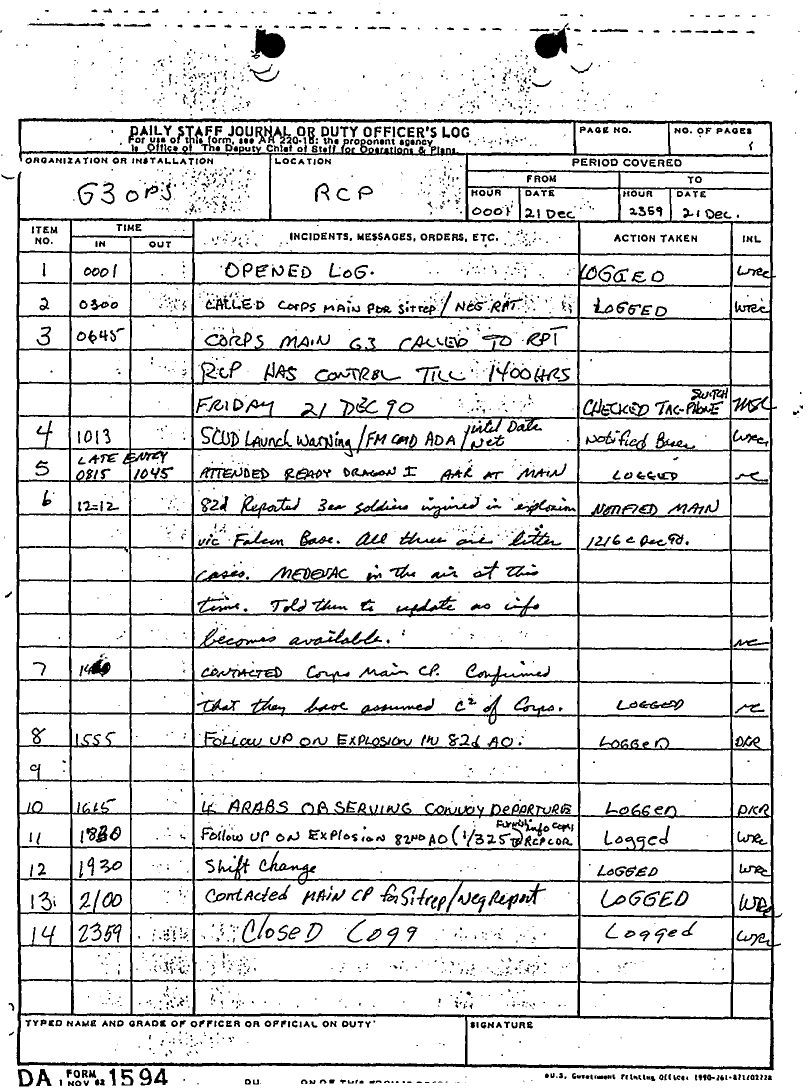 DAILY STAFF JOURNAL OR DUTY OFFICER'S LOG
For use of this form, see AR 220-15; the proponent agency
is Office of The Deputy Chief of Staff for Operations & Plans.
PAGE NO.
NO. OF PAGES
1
ORGANIZATION OR INSTALLATION
G3 OPS
LOCATION
RCP
PERIOD COVERED
FROM TO
HOUR DATE HOUR DATE
0001 21 Dec 2359 21 Dec.
ITEM NO. TIME IN OUT INCIDENTS, MESSAGES, ORDERS, ETC. ACTION TAKEN INL
1 0001 OPENED LOG. LOGGED WRC
2 0300 CALLED CORPS MAIN FOR SITREP / NEG RPT LOGGED WRC
3 0645 CORPS MAIN G3 CALLED TO RPT
RCP HAS CONTROL TILL 1400 HRS
FRIDAY 21 DEC 90 CHECKED TAC-PHONE SWITCH MSL
4 1013 SCUD Launch Warning / FM CMD ADA / Intel Data Net Notified WRC
LATE ENTRY
5 0815 1045 ATTENDED READY DRAGON I AAR AT MAIN LOGGED
6 12=12 82d Reported 3 ea soldiers injured in explosion NOTIFIED MAIN
vic Falcon Base. All three are litter 1216 C Dec 90.
cases. MEDEVAC in the air at this
time. Told them to update as info
becomes available.
7 CONTACTED Corps Main CP. Confirmed
that they have assumed C² of Corps. LOGGED
8 1555 FOLLOW UP ON EXPLOSION IN 82d AO. LOGGED DKR
9
10 1615 4 ARABS OBSERVING CONVOY DEPARTURE LOGGED DKR
11 1830 Follow UP ON EXPLOSION 82ND AO (1/325) Furnish info copy to RCP CDR Logged WRC
12 1930 Shift Change LOGGED WRC
13 2100 Contacted MAIN CP for Sitrep / Neg Report LOGGED WRC
14 2359 Closed Logg Logged WRC
TYPED NAME AND GRADE OF OFFICER OR OFFICIAL ON DUTY
SIGNATURE
DA FORM 1 NOV 62 1594
U.S. Government Printing Office: 1990-261-871/02728